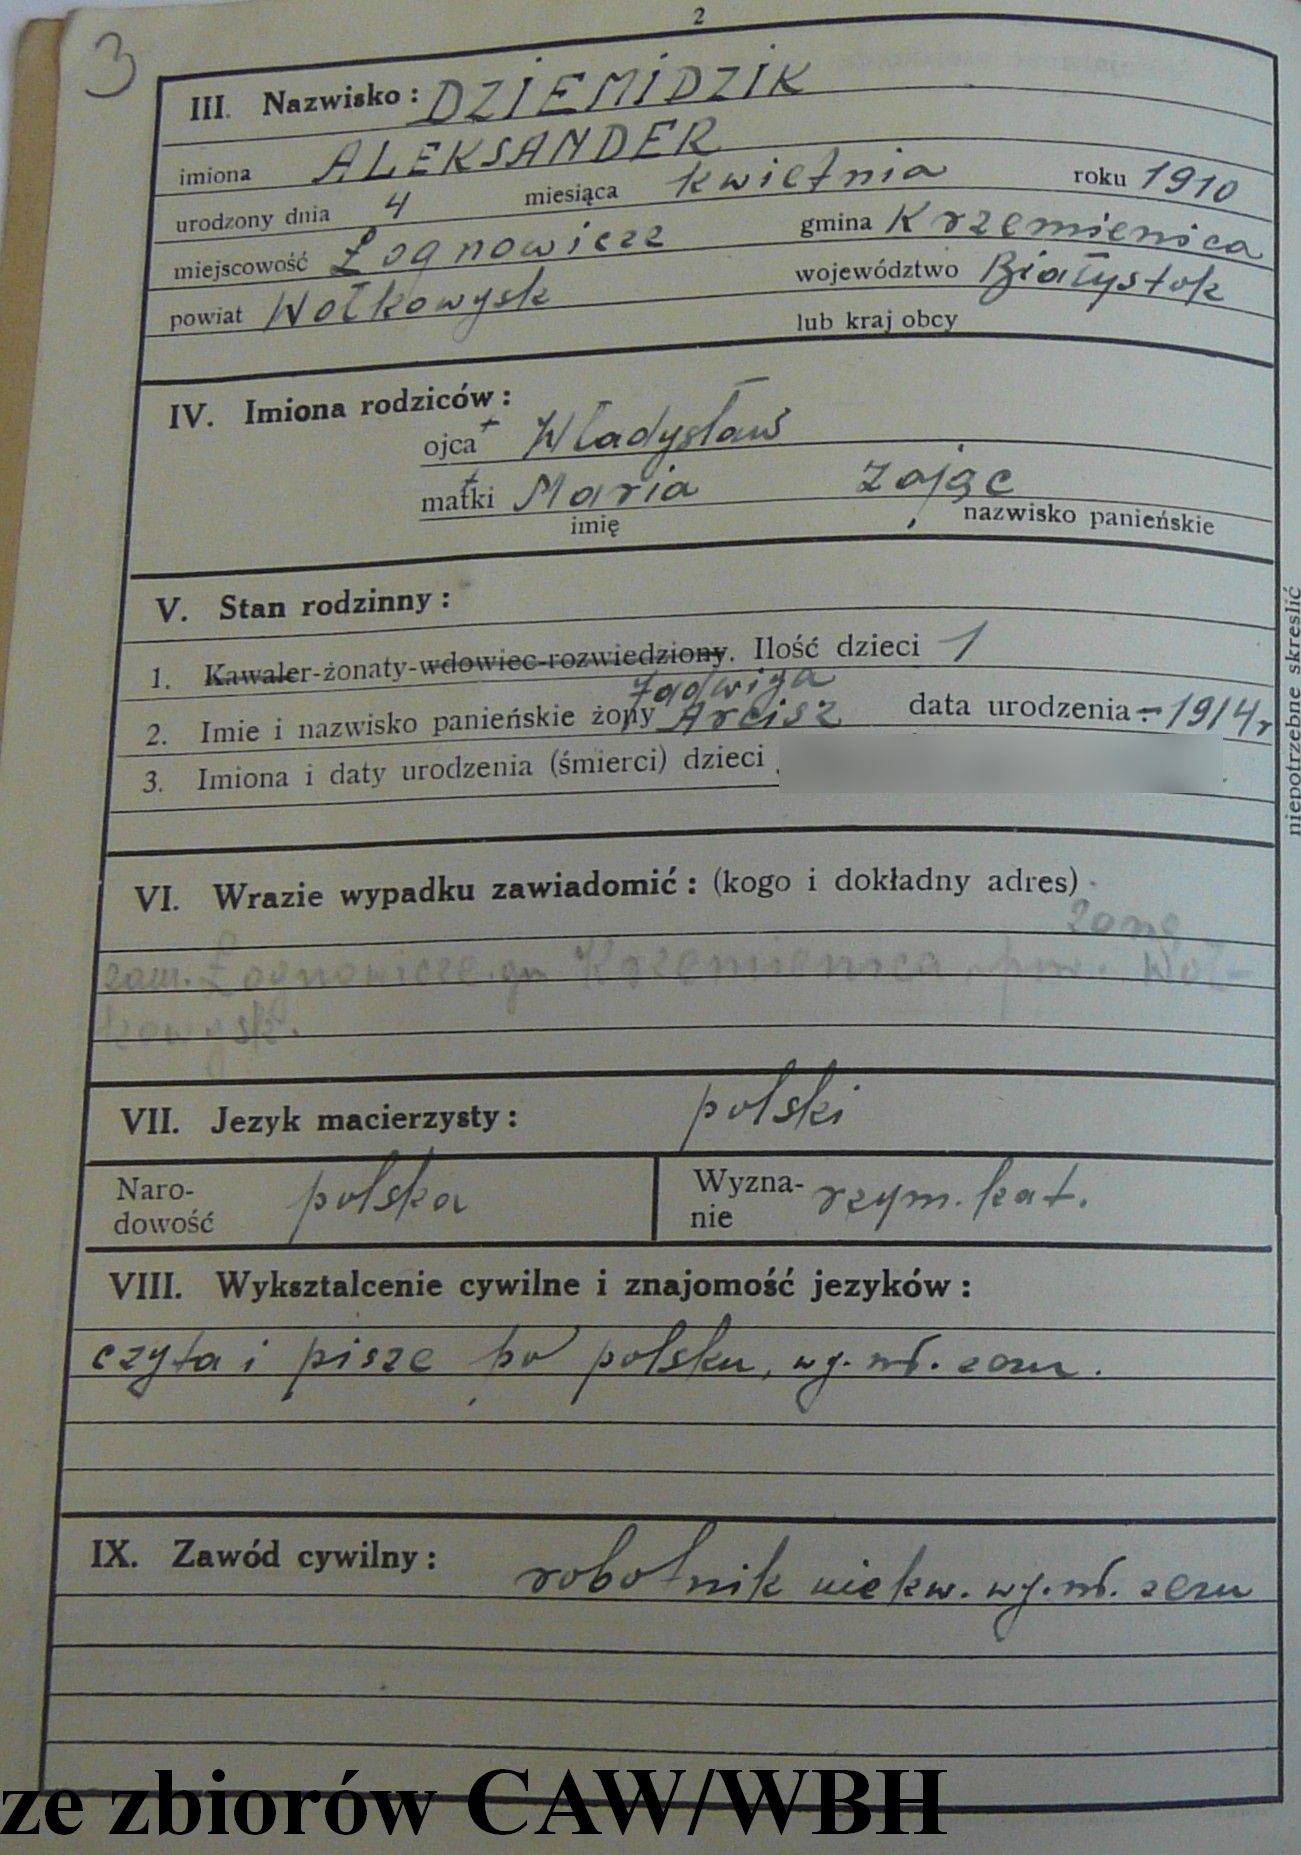 2
3
III. Nazwisko: DZIEMIDZIK
imiona ALEKSANDER
urodzony dnia 4 miesiąca kwietnia roku 1910
miejscowość Łognowicze gmina Krzemienica
powiat Wołkowysk województwo Białystok
lub kraj obcy
IV. Imiona rodziców:
ojca + Władysław
matki + Maria Zając
imię nazwisko panieńskie
V. Stan rodzinny:
1. Kawaler-żonaty-wdowiec-rozwiedziony. Ilość dzieci 1
Jadwiga
2. Imie i nazwisko panieńskie żony Arcisz data urodzenia: - 1914 r
3. Imiona i daty urodzenia (śmierci) dzieci
niepotrzebne skreślić
VI. Wrazie wypadku zawiadomić: (kogo i dokładny adres)
żonę
zam. Łognowicze gm Krzemienica, pow. Woł-
kowysk.
VII. Jezyk macierzysty: polski
Naro- polska Wyzna- rzym. kat.
dowość nie
VIII. Wyksztalcenie cywilne i znajomość jezyków:
czyta i pisze po polsku, wg. wł. zezn.
IX. Zawód cywilny: robotnik niekw. wg. wł. zezn
ze zbiorów CAW/WBH